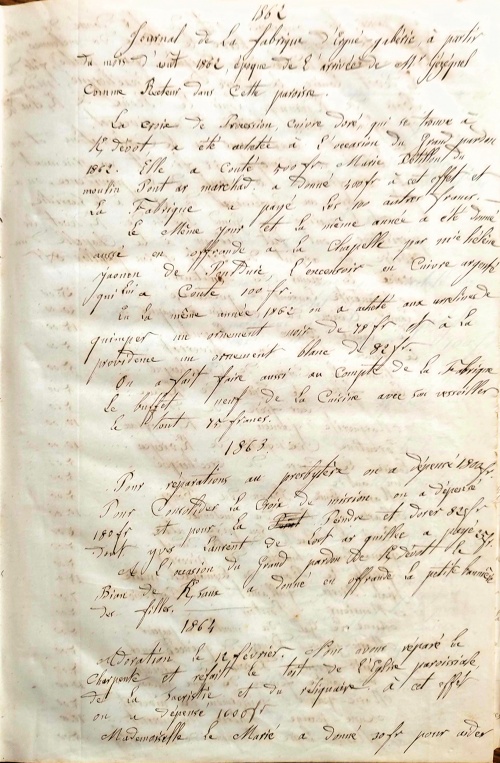 1862
Journal de La fabrique d'Ergué gabéric à partir
du mois d'août 1862 époque de l'arrivée de Mr
Comme Recteur dans Cette paroisse.
La croix de Procession, Cuivre doré, qui se trouve à
Kdévot a été achetée à l'occasion du Grand pardon
1862. Elle a Conté 500 fr. Marie du
moulin Pont ar marchad. a Donné 400 fr à cet effet et
La Fabrique a payé les autres francs.
Le Même jour et la même année a été donné
aussi en offrande à la Chapelle par mie hélène
de l'encensoir en Cuivre argenté
qui lui a Conté 100 fr.
En la même année 1862 on a acheté aux ursulines de
quimper un ornement noir de 78 fr et à la
providence un ornement blanc de 82 fr.
On a fait faire aussi au Compte de la Fabrique
le buffet neuf de la Cuisine avec son
le tout francs.
1863
Pour réparations au presbytère on a dépensé
Pour Consolider la Croix de mission on a dépensé
180 fr et pour la peindre et dorer
Dont yves Laurent de a payé
A l'occasion du Grand pardon de Kdévot le
Bian de a donné en offrande la petite bannière
des filles.
1864
Adoration le 12 février. Pour avoir réparé la
Charpente et refait le toit de l'église paroissiale,
de la Sacristie et du réliquaire. à cet effet
on a dépensé 1000 fr
Mademoiselle le Marié a donné fr pour aider